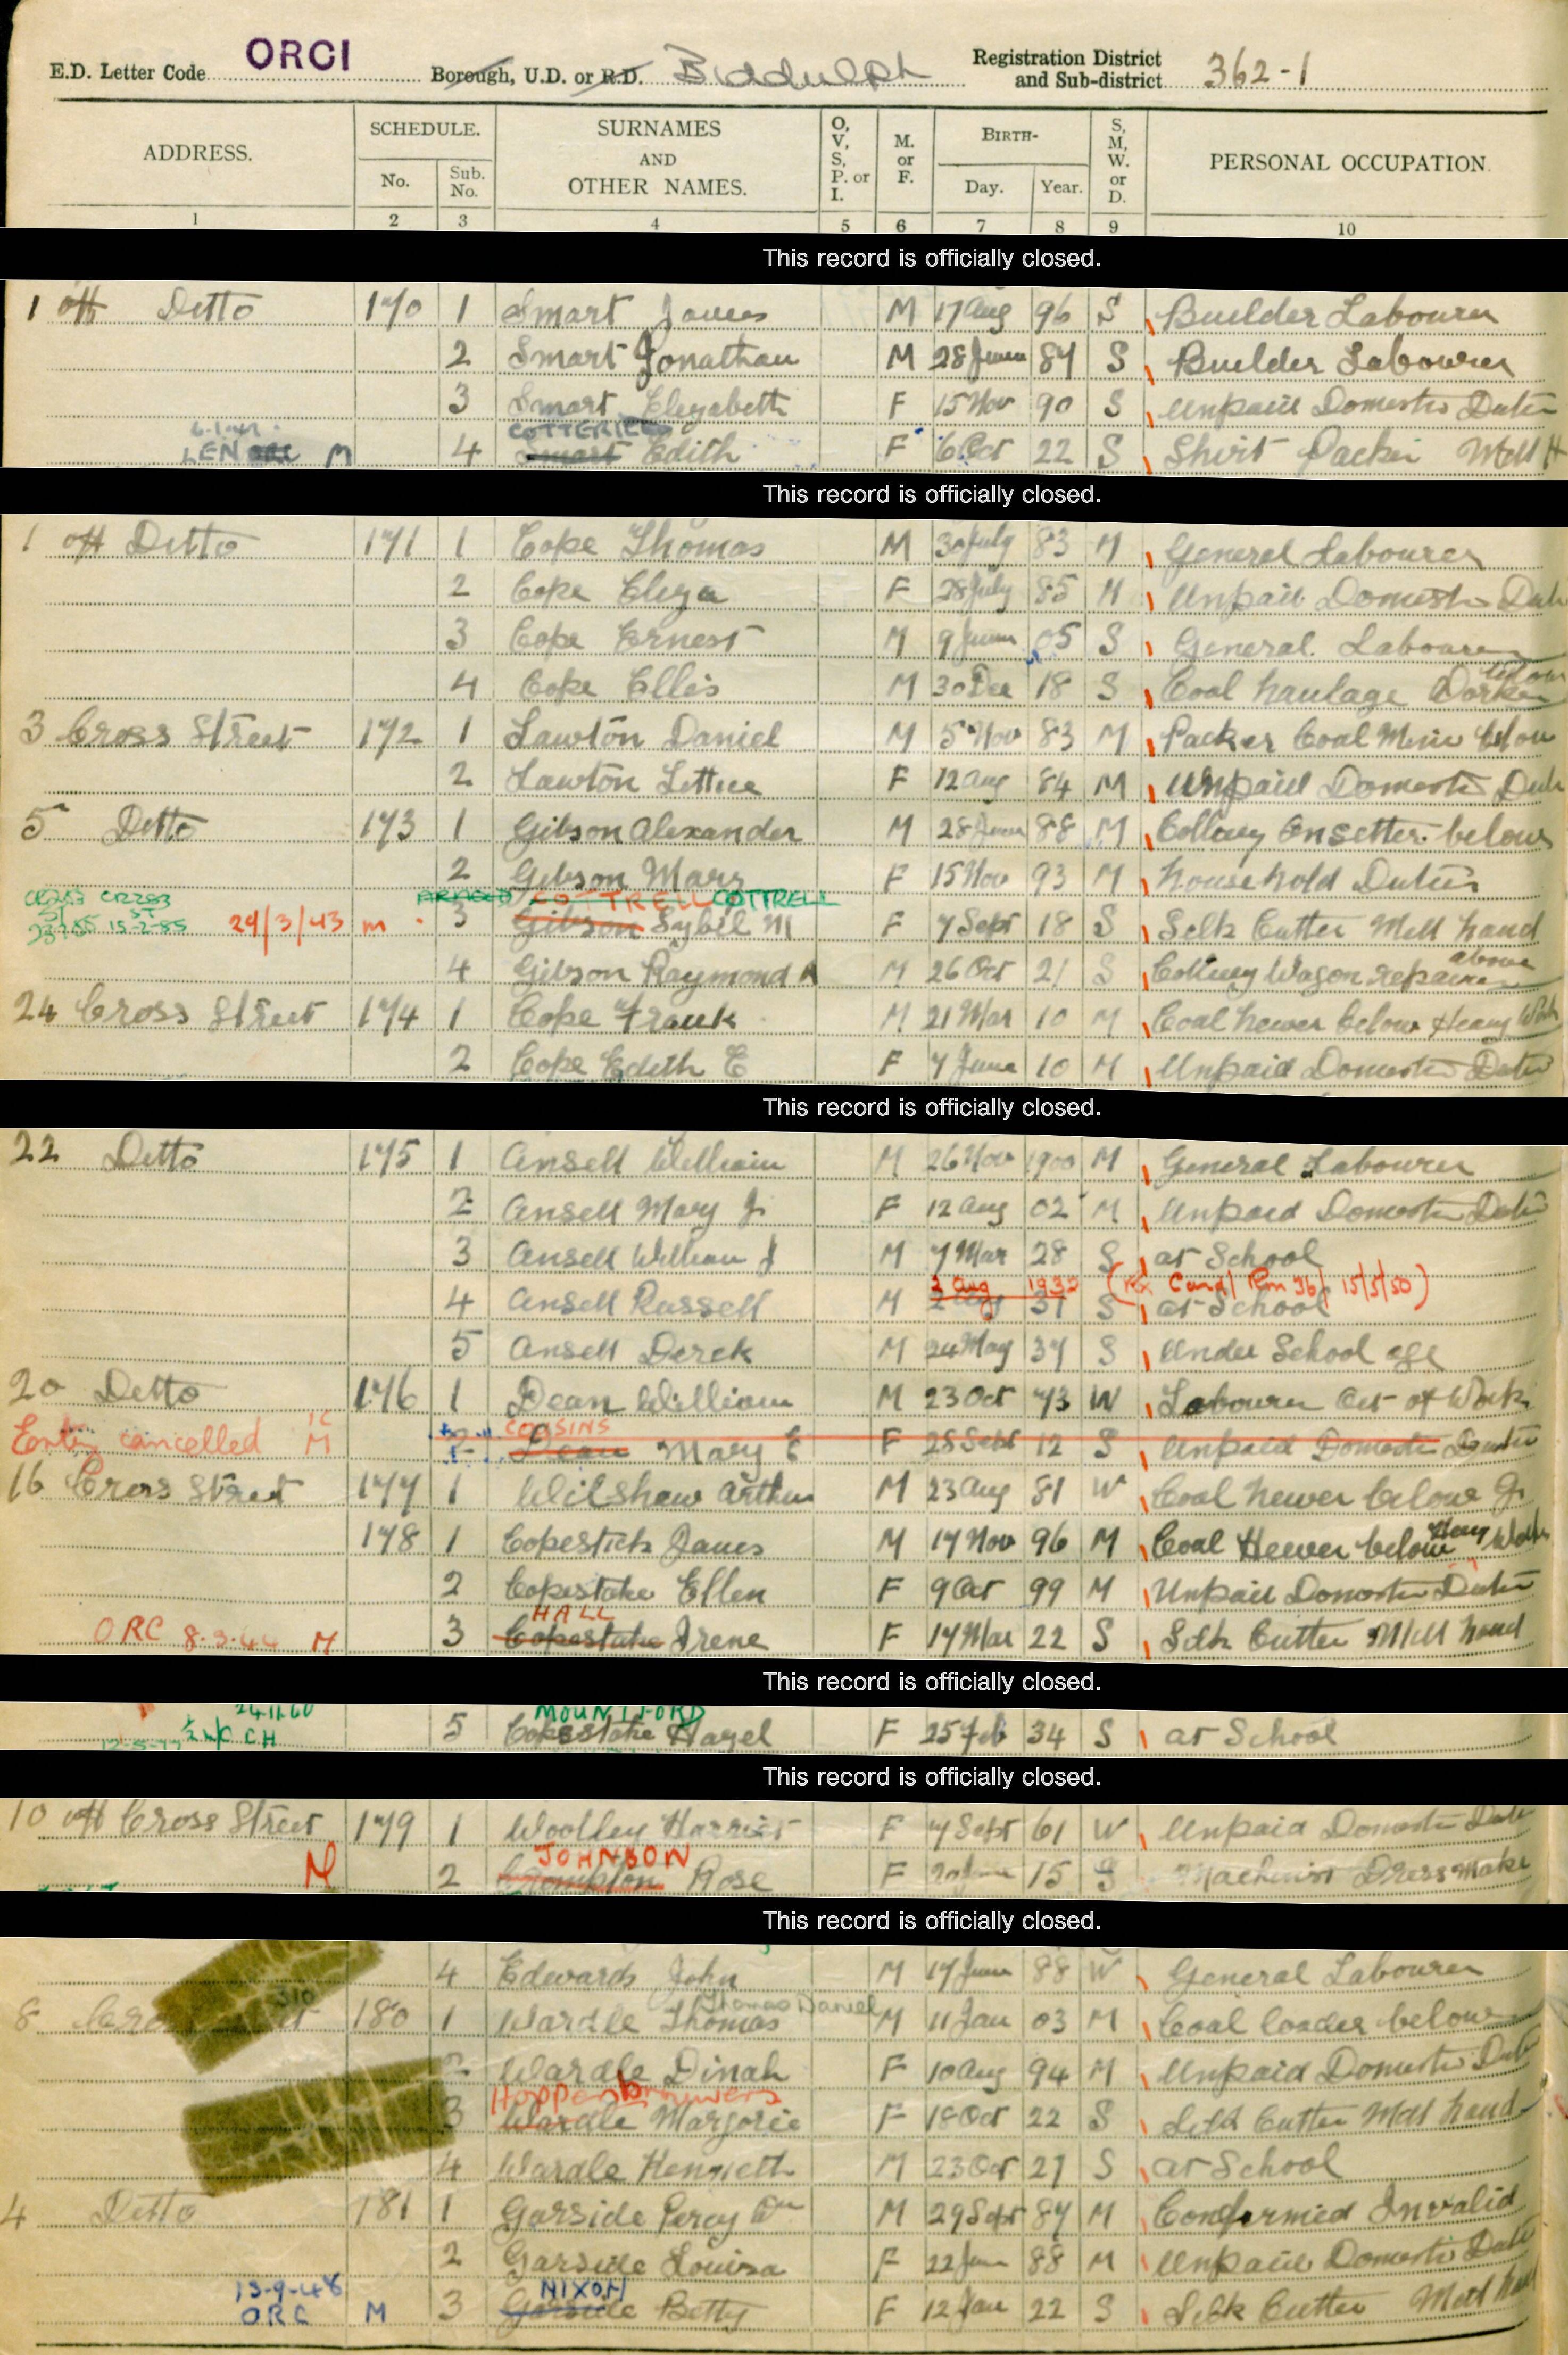 E.D. Letter Code ORCI Borough, U.D. or R.D. Biddulph Registration District and Sub-district 362-1
ADDRESS. SCHEDULE. No. Sub. No. SURNAMES AND OTHER NAMES. O, V, S, P. or I. M. or F. BIRTH- Day. Year. S, M, W. or D. PERSONAL OCCUPATION.
1 2 3 4 5 6 7 8 9 10
This record is officially closed.
1 off Ditto 170 1 Smart James M 17 Aug 96 S Builder Labourer
2 Smart Jonathan M 28 June 84 S Builder Labourer
3 Smart Elizabeth F 15 Nov 90 S Unpaid Domestic Duties
6.1.41 COTTERILL
LEN M 4 Smart Edith F 6 Oct 22 S Shirt Packer Mill H
This record is officially closed.
1 off Ditto 171 1 Cope Thomas M 30 July 83 M General Labourer
2 Cope Eliza F 28 July 85 M Unpaid Domestic Dut
3 Cope Ernest M 9 June 05 S General Labourer
4 Cope Ellis M 30 Dec 18 S Coal haulage Worker below
3 Cross Street 172 1 Lawton Daniel M 5 Nov 83 M Packer Coal Mine below
2 Lawton Lettice F 12 Aug 84 M Unpaid Domestic Dut
5 Ditto 173 1 Gibson Alexander M 28 June 88 M Colliery Onsetter below
2 Gibson Mary F 15 Nov 93 M household Duties
CR283 CR283 COTTRELL COTTRELL
15-2-85 29/3/43 m 3 Gibson Sybil M F 7 Sept 18 S Silk Cutter Mill hand
4 Gibson Raymond A M 26 Oct 21 S Colliery Wagon repairer above
24 Cross Street 174 1 Cope Frank M 21 Mar 10 M Coal hewer below Heavy Work
2 Cope Edith E F 7 June 10 M Unpaid Domestic Duties
This record is officially closed.
22 Ditto 175 1 Ansell William M 26 Nov 1900 M General Labourer
2 Ansell Mary J F 12 Aug 02 M Unpaid Domestic Duties
3 Ansell William J M 7 Mar 28 S at School
3 Aug 1932 (Rx Card/ Rm 36/ 15/5/50)
4 Ansell Russell M 2 Aug 31 S at School
5 Ansell Derek M 24 May 37 S Under School age
20 Ditto 176 1 Dean William M 23 Oct 73 W Labourer Out of Work
COUSINS
Entry cancelled M Dean Mary E F 28 Sept 12 S Unpaid Domestic Duties
16 Cross Street 177 1 Wilshaw Arthur M 23 Aug 81 W Coal hewer below G
178 1 Copestick James M 17 Nov 96 M Coal Hewer below Heavy Work
2 Copestake Ellen F 9 Oct 99 M Unpaid Domestic Duties
HALL
ORC M 3 Copestake Irene F 17 Mar 22 S Silk Cutter Mill hand
This record is officially closed.
24.11.60 MOUNTFORD
C.H 5 Copestake Hazel F 25 Feb 34 S at School
This record is officially closed.
10 off Cross Street 179 1 Woolley Harriet F 7 Sept 61 W Unpaid Domestic Duties
JOHNSON
M 2 Rose F 15 S Machinist Dress Make
This record is officially closed.
4 Edwards John M 17 June 88 W General Labourer
Thomas Daniel
8 180 1 Wardle Thomas M 11 Jan 03 M Coal loader below
Wardle Dinah F 10 Aug 94 M Unpaid Domestic Duties
3 Wardle Marjorie F 18 Oct 22 S Silk Cutter Mill hand
4 Wardle Kenneth M 23 Oct 27 S at School
4 Ditto 181 1 Garside Percy Wm M 29 Sept 84 M Confirmed Invalid
2 Garside Louisa F 22 88 M Unpaid Domestic Duties
13-9-48 NIXON
ORC M 3 Garside Betty F 12 Jan 22 S Silk Cutter Mill hand